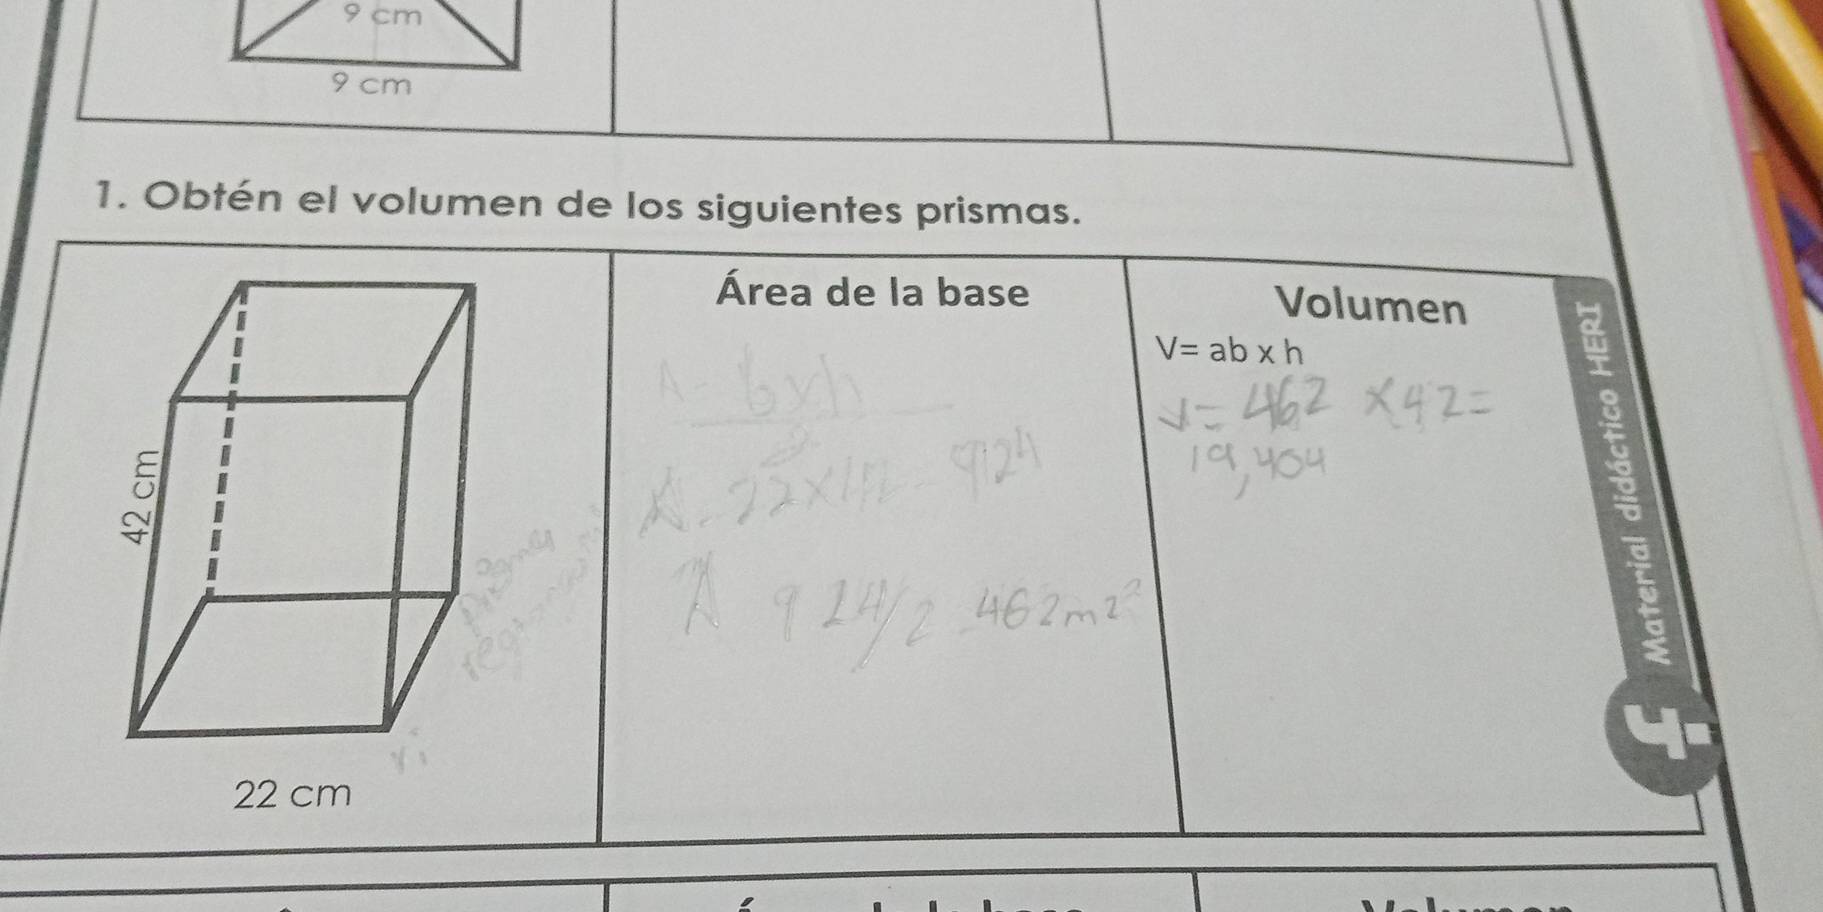 9 cm
9 cm
1. Obtén el volumen de los siguientes prismas.
42 cm
22 cm
Área de la base
A - bxh
A - 22x42 - 924
A 924/2 - 462m2²
Volumen
V= ab x h
V= 462 x42=
19,404
Material didáctico HERI